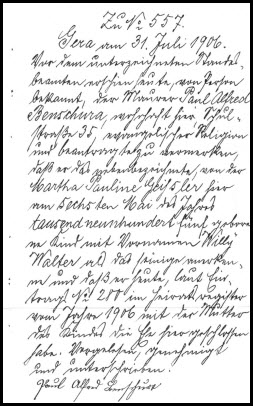 Zu № 557.
Gera, am 31. Juli 1906.
Vor dem unterzeichneten Standes-
beamten erschien heute, von Person
bekannt, der Maurer Paul Alfred
Benschura, wohnhaft hier, Schul-
straße 35, evangelischer Religion
und beantragte zu vermerken,
daß er das nebenbezeichnete, von der
Martha Pauline Geihsler hier
am sechsten Mai des Jahres
tausend neunhundert fünf gebore-
ne Kind mit Vornamen Willy
Walter als das seinige anerken-
ne und daß er heute, laut Ein-
trags № 200 im Heiratsregister
vom Jahre 1906 mit der Mutter
des Kindes die Ehe hier geschlossen
habe. Vorgelesen, genehmigt
und unterschrieben.
Paul Alfred Benschura